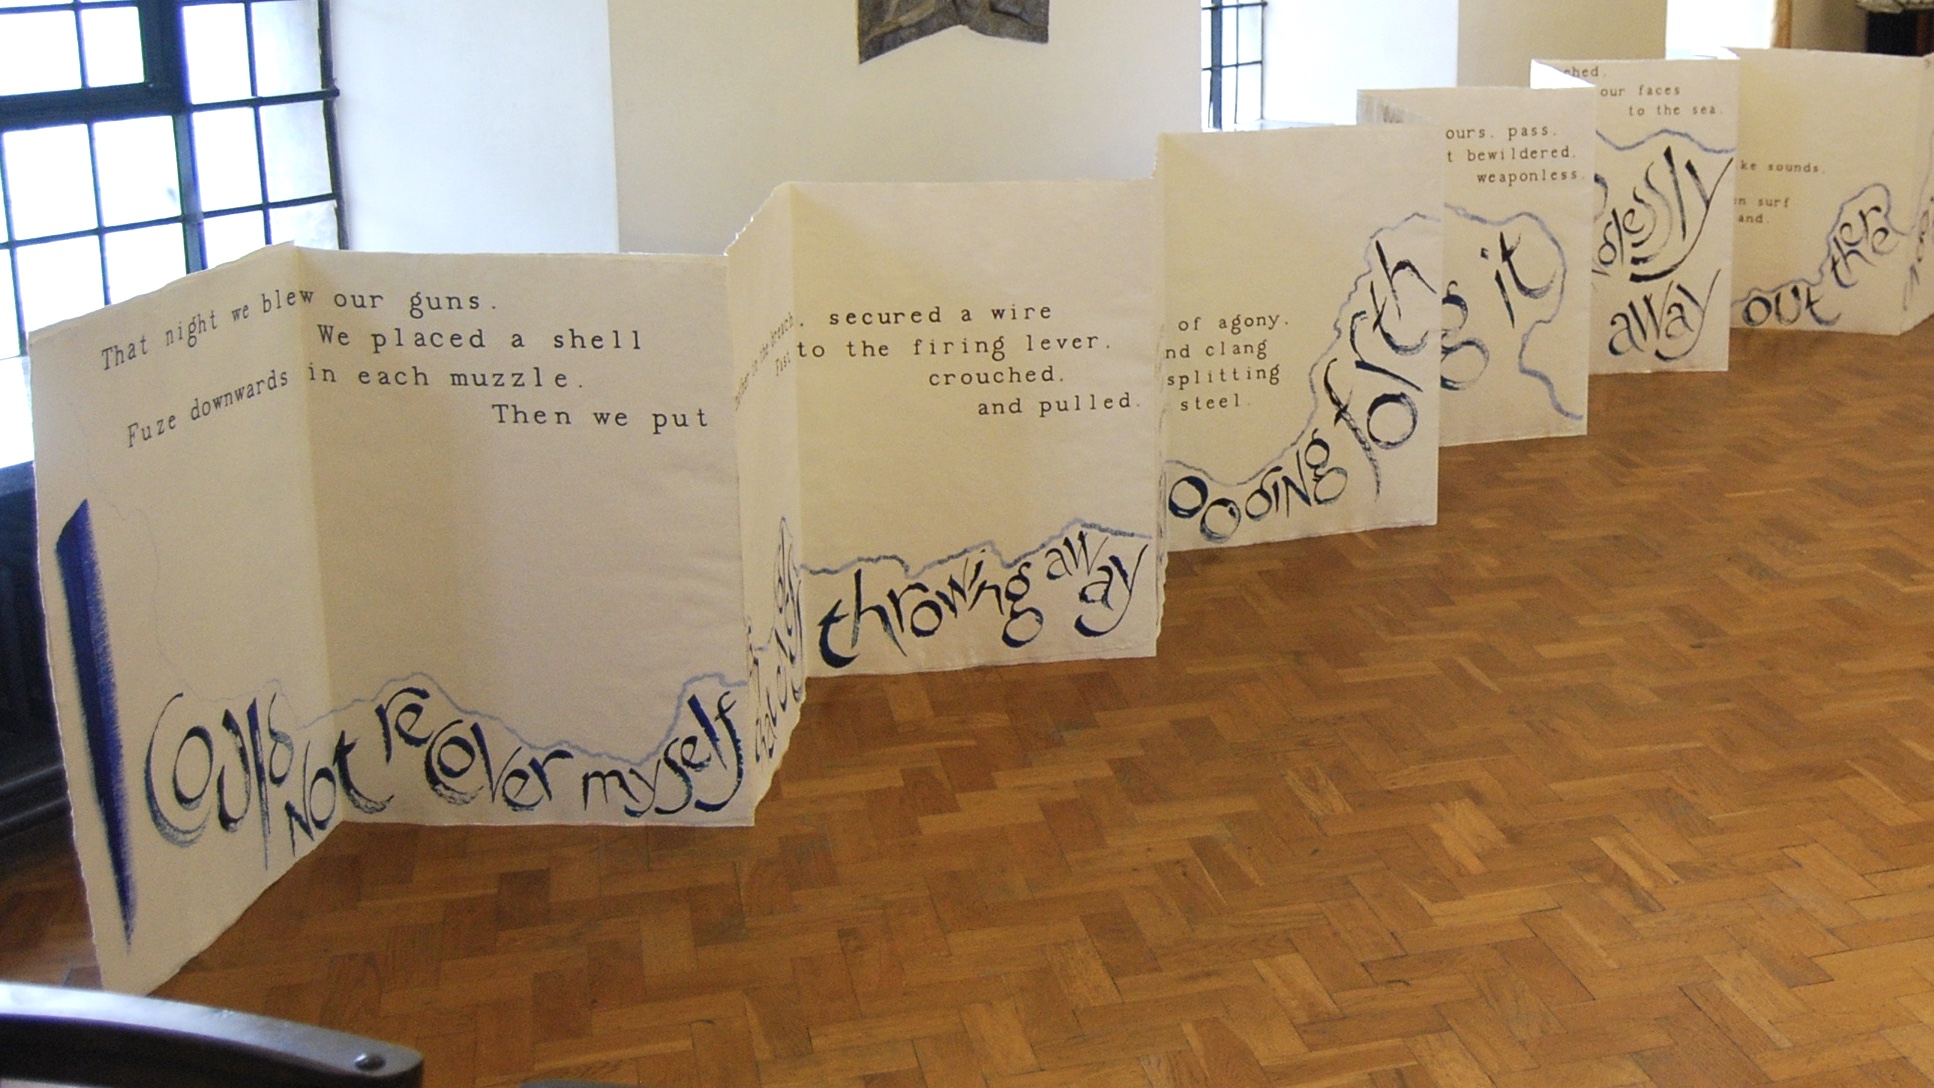 That night we blew our guns.
We placed a shell
Fuze downwards in each muzzle.
Then we put
in the breach.
secured a wire
to the firing lever.
crouched.
and pulled.
of agony.
clang
splitting
steel.
ours. pass.
bewildered.
weaponless.
our faces
to the sea.
sounds.
surf
I could not recover myself
throwing away
oooing forth
it
away
out there